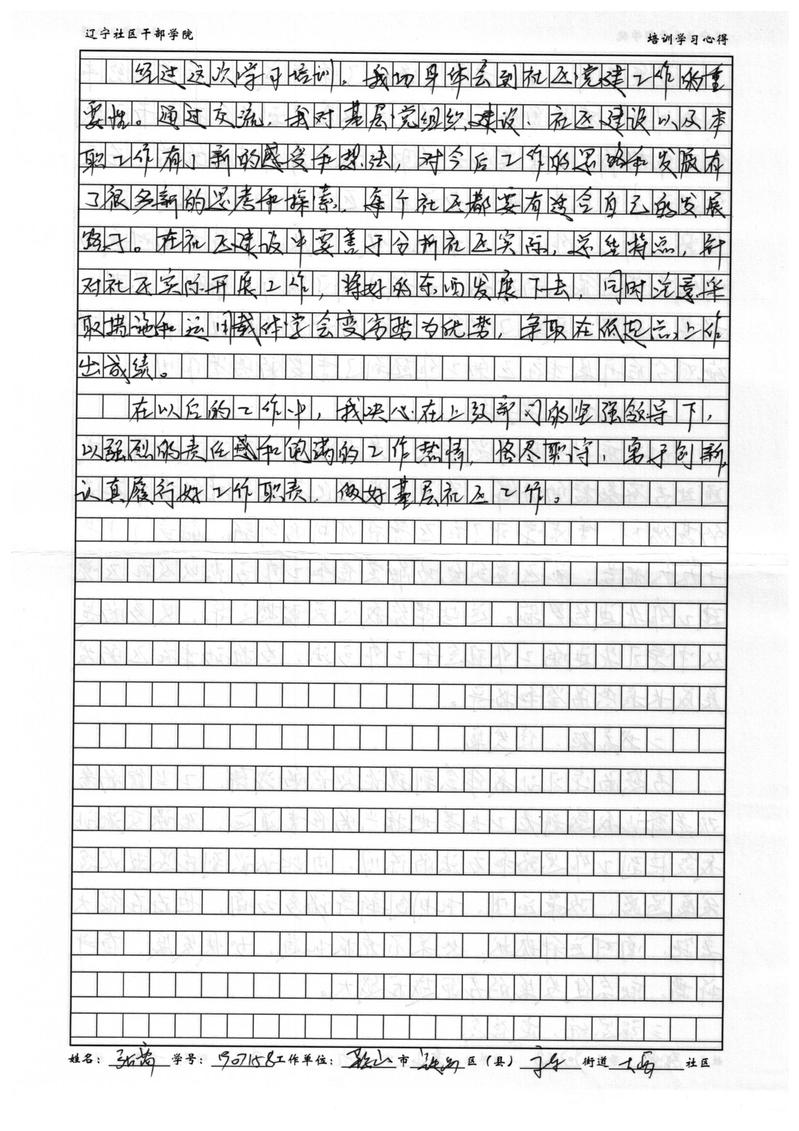 辽宁社区干部学院 培训学习心得
经过这次学习培训，我切身体会到社区党建工作的重
要性。通过交流，我对基层党组织建设、社区建设以及本
职工作有了新的感受和想法，对今后工作的思路和发展有
了很多新的思考和探索，每个社区都要有适合自己的发展
路子。在社区建设中要善于分析社区实际，总结特点，针
对社区实际开展工作，将好的东西发展下去，同时注意采
取措施和运用载体学会变劣势为优势，争取在低起点上作
出成绩。
在以后的工作中，我决心在上级部门的坚强领导下，
以强烈的责任感和饱满的工作热情，恪尽职守，勇于创新，
认真履行好工作职责，做好基层社区工作。
姓名： 学号：1907158 工作单位：鞍山 市 铁西 区（县） 街道 社区